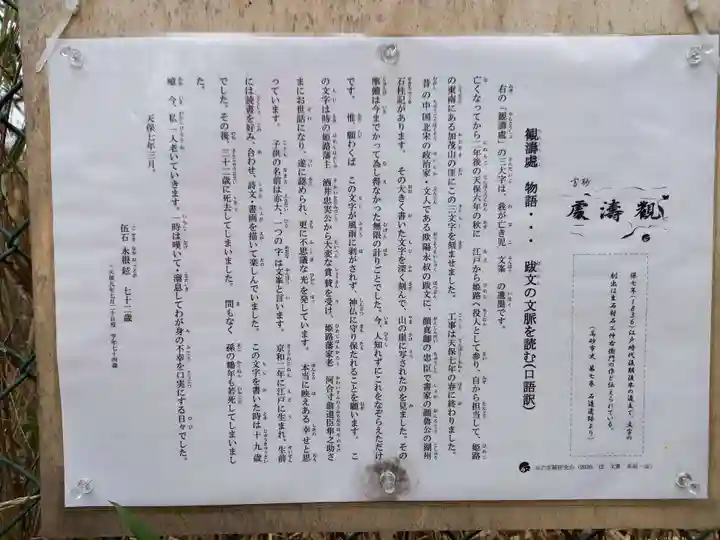 高砂
觀濤處
觀濤處 物語・・・ 跋文の文脈を読む(口語訳)
右の「観濤處」の三大字は、我が亡き児 文案 の遺墨です。
亡くなってから二年後の天保六年の秋に 江戸から姫路へ没人として参り、自から担当して、姫路
の東南にある加茂山の崖にこの三文字を刻ませました。 工事は天保七年の春に終わりました。
昔の中国北宋の政治家・文人である欧陽永叔の跋文に、顔真卿の忠臣で書家の顔魯公の湖州
石柱記があります。 その大きく書いた文字を深く刻んで、山の崖に写されたのを見ました。その
準備は今までかつて為し得なかった無限の計りごとでした。今、人知れずにこれをなぞらえただけ
です。 惟、願わくば この文字が風雨に剥がされず、神仏に守り保たれることを願います。 こ
の文字は時の姫路藩主 酒井忠実公から大変な賞賛を受け、姫路藩家老 河合寸翁道臣隼之助さ
まにお世話になり、遂に認められ、更に不思議な光を発しています。 本当に映えある幸せと思
っています。 子供の名前は赤大、二つの字は文案と言います。 京和二年に江戸に生まれ、生前
には読書を好み、合わせ、詩文・書画を描いて楽しんでいました。 この文字を書いた時は十九歳
でした。その後、三十二歳に死去してしまいました。 間もなく 孫の鶴年も若死してしまいまし
た。
嘘 今、私一人老いていきます。一時は嘆いて・溜息してわが身の不幸を口実にする日々でした。
天保七年三月。
伍石 永根鉉 七十二歳
(天保九年七月二十日歿 享年七十四歳)